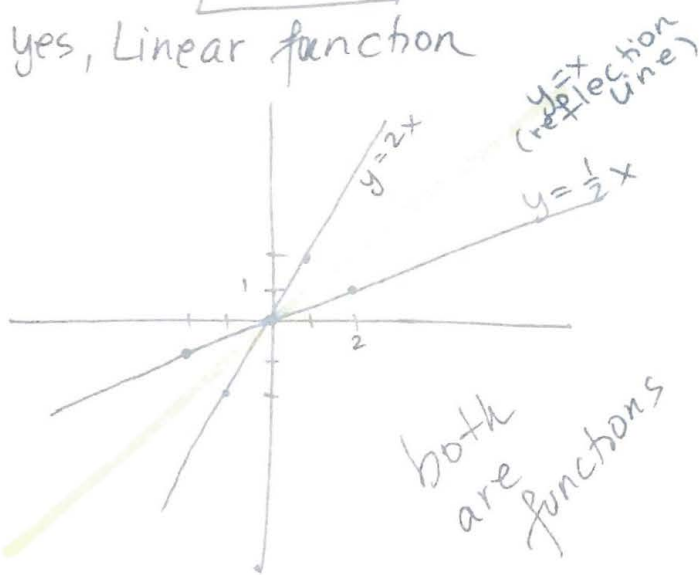 yes, Linear function
y=x
(reflection
line)
y=2x
y=\frac{1}{2}x
1
2
both
are
functions